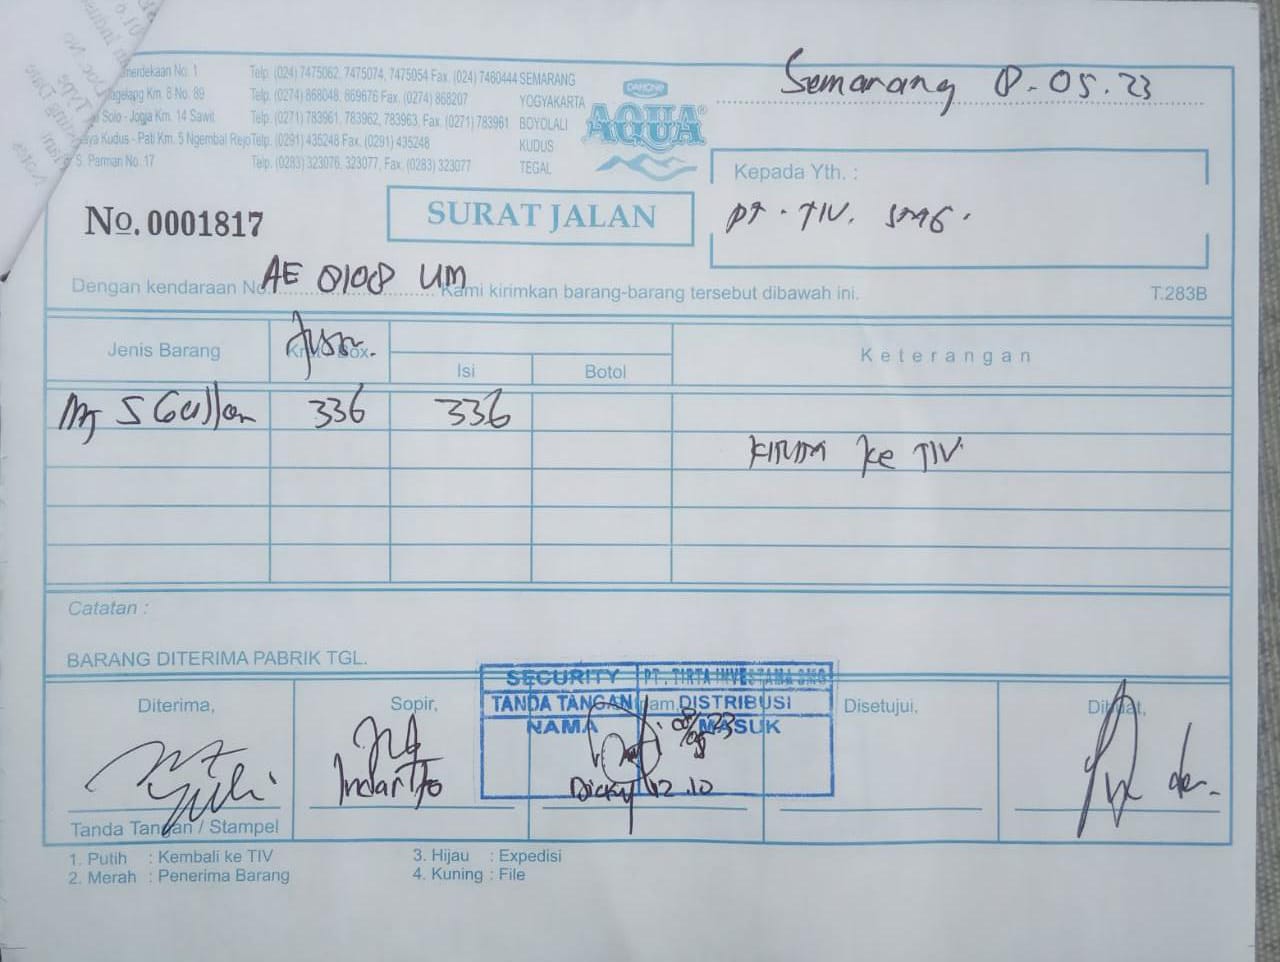 merdekaan No. 1 Telp. (024) 7475062, 7475074, 7475054 Fax. (024) 7460444 SEMARANG
agelang Km. 8 No. 89 Telp. (0274) 868048, 869676 Fax. (0274) 868207 YOGYAKARTA
Solo - Jogja Km. 14 Sawit Telp. (0271) 783961, 783962, 783963, Fax. (0271) 783961 BOYOLALI
aya Kudus - Pati Km. 5 Ngembal Rejo Telp. (0291) 435248 Fax. (0291) 435248 KUDUS
S. Parman No. 17 Telp. (0283) 323076, 323077, Fax. (0283) 323077 TEGAL
DANONE
AQUA
Semarang 8.05.23
Kepada Yth. :
PT. TIV. SMG.
No. 0001817
SURAT JALAN
Dengan kendaraan No. AE 8108 UM Kami kirimkan barang-barang tersebut dibawah ini. T.283B
Jenis Barang Isi Botol Keterangan
5 Gallon 336 336
ke TIV
Catatan :
BARANG DITERIMA PABRIK TGL.
SECURITY PT. TIRTA INVESTAMA SMG
TANDA TANGAN DISTRIBUSI
NAMA MASUK
Diterima, Sopir, Disetujui, Dibuat,
08/05 23
Yuli Indarto Dicky 12.10
Tanda Tangan / Stampel
1. Putih : Kembali ke TIV 3. Hijau : Expedisi
2. Merah : Penerima Barang 4. Kuning : File